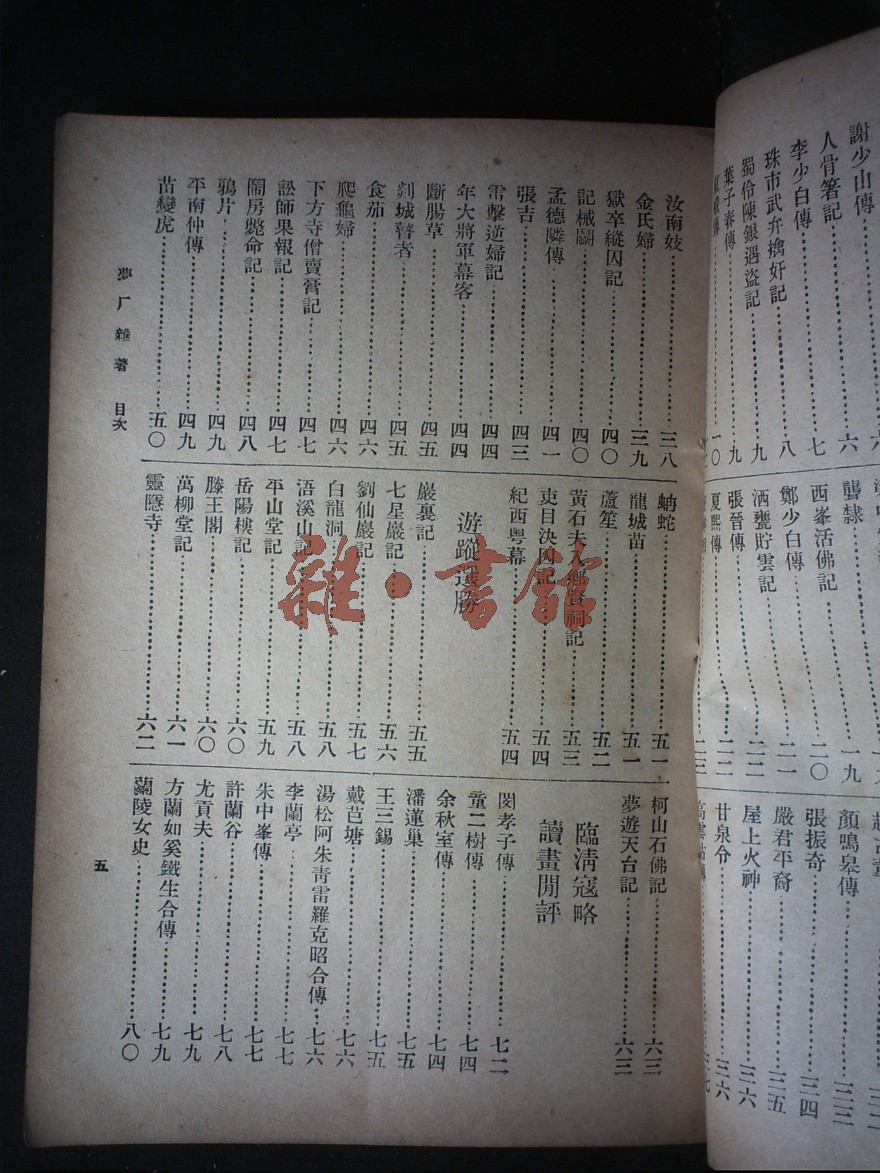 謝少山傳
人骨箸記
李少白傳……七
珠市武弁擒奸記……八
蜀伶陳銀遇盜記……九
葉子春傳……九
聾隸……一九
西峯活佛記……二〇
鄭少白傳……二一
酒甕貯雲記……二二
張晉傳……二二
夏熙傳……二三
顏鳴皋傳
張振奇……三四
嚴君平裔……三五
屋上火神……三六
甘泉令……三六
汝南妓……三八
金氏婦……三九
獄卒縱囚記……四〇
記械鬭……四〇
孟德隣傳……四一
張吉……四三
雷擊逆婦記……四四
年大將軍幕客……四四
斷腸草……四五
剡城瞽者……四五
食茄……四六
爬龜婦……四六
下方寺僧賣膏記……四七
訟師果報記……四七
鬧房斃命記……四八
鴉片……四九
平南仲傳……四九
苗變虎……五〇
蚺蛇……五一
龍城苗……五一
蘆笙……五二
黃石夫人鄉賢祠記……五三
吏目決囚記……五四
紀西粵幕……五四
遊蹤選勝
嚴裏記……五五
七星巖記……五六
劉仙巖記……五七
白龍洞……五八
浯溪山記……五八
平山堂記……五九
岳陽樓記……六〇
滕王閣……六〇
萬柳堂記……六一
靈隱寺……六二
柯山石佛記……六三
夢遊天台記……六三
臨清寇略
讀畫閒評
閔孝子傳……七二
童二樹傳……七四
余秋室傳……七四
潘蓮巢……七五
王三錫……七五
戴芑塘……七六
湯松阿朱青雷羅克昭合傳……七六
李蘭亭……七七
朱中峯傳……七七
許蘭谷……七八
尤貢夫……七九
方蘭如奚鐵生合傳……七九
蘭陵女史……八〇
夢厂雜著 目次
五
雜·書館